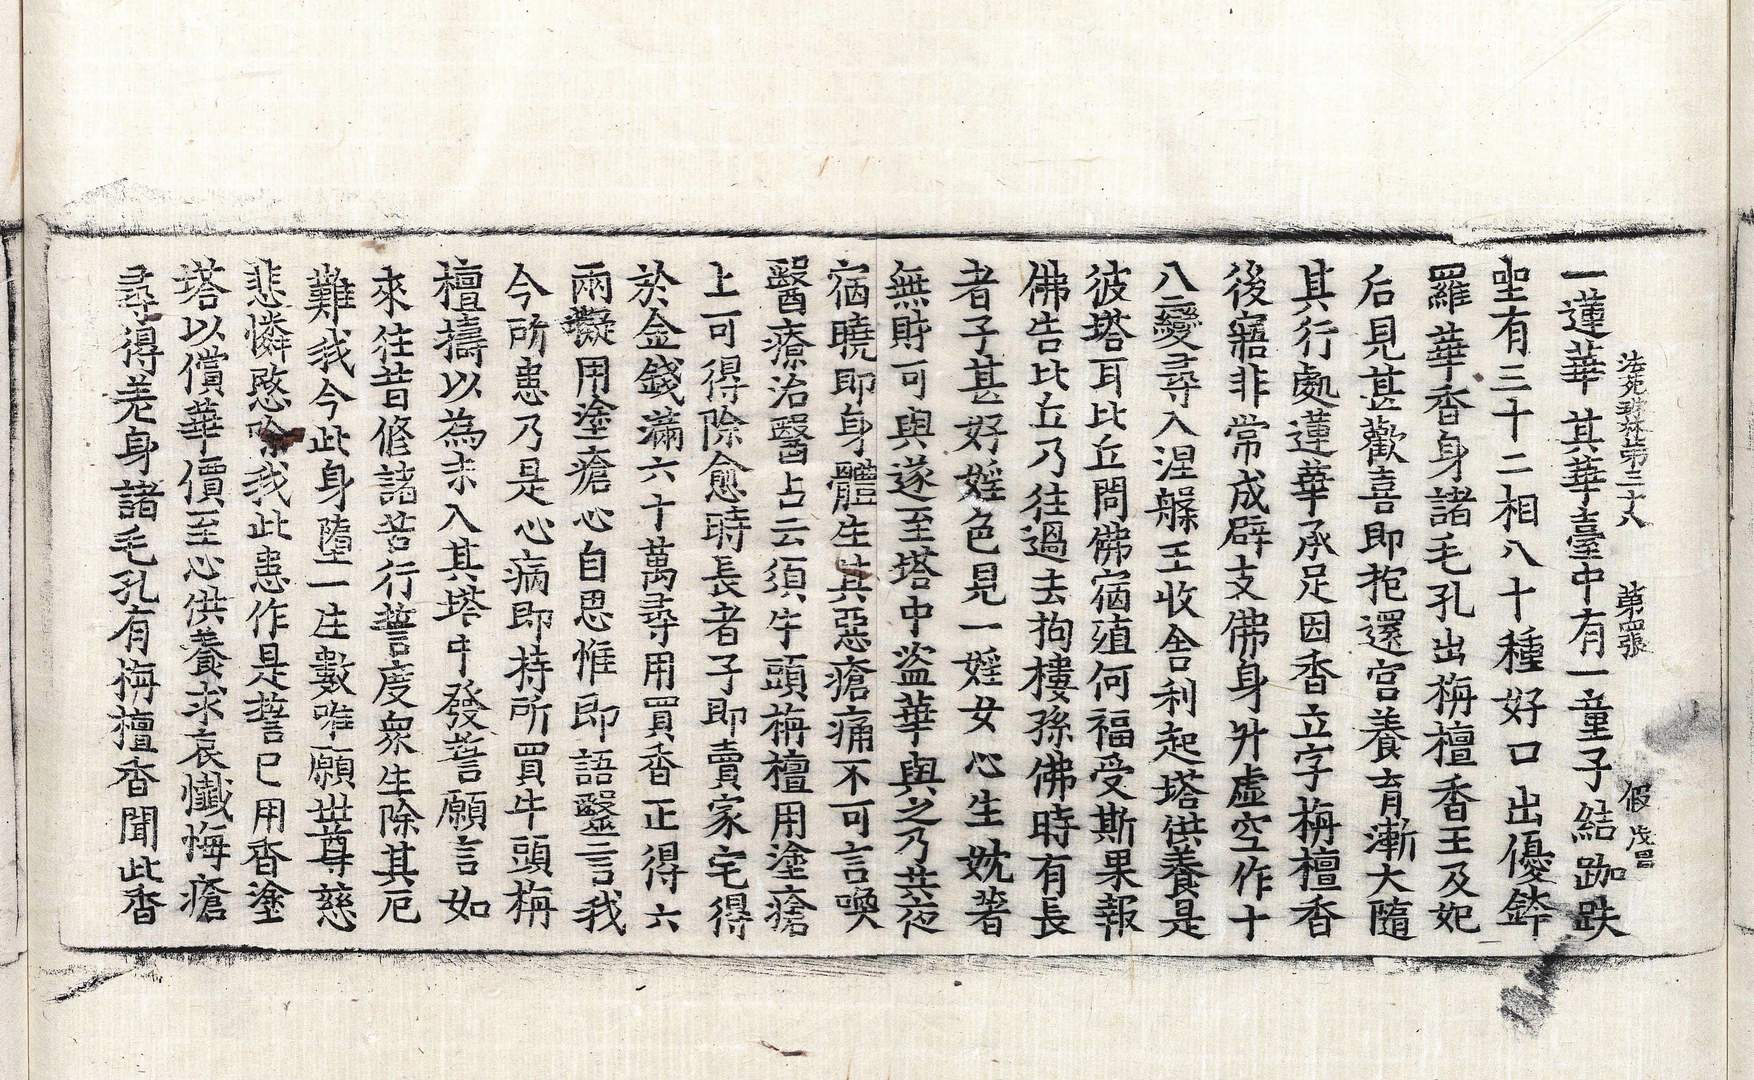 法苑珠林第三十八　第四張　假　茂冒
一蓮華其華臺中有一童子結跏趺
坐有三十二相八十種好口出優鉢
羅華香身諸毛孔出栴檀香王及妃
后見甚歡喜即抱還宮養育漸大隨
其行處蓮華承足因香立字栴檀香
後寤非常成辟支佛身升虛空作十
八變尋入涅槃王收舍利起塔供養是
彼塔耳比丘問佛宿殖何福受斯果報
佛告比丘乃往過去拘樓孫佛時有長
者子甚好婬色見一婬女心生躭著
無財可與遂至塔中盜華與之乃共夜
宿曉即身體生其惡瘡痛不可言喚
醫療治醫占云須牛頭栴檀用塗瘡
上可得除愈時長者子即賣家宅得
於金錢滿六十萬尋用買香正得六
兩擬用塗瘡心自思惟即語醫言我
今所患乃是心病即持所買牛頭栴
檀擣以為末入其塔中發誓願言如
來往昔修諸苦行誓度眾生除其厄
難我今此身墮一生數唯願世尊慈
悲憐愍除我此患作是誓已用香塗
塔以償華價至心供養求哀懺悔瘡
尋得差身諸毛孔有栴檀香聞此香